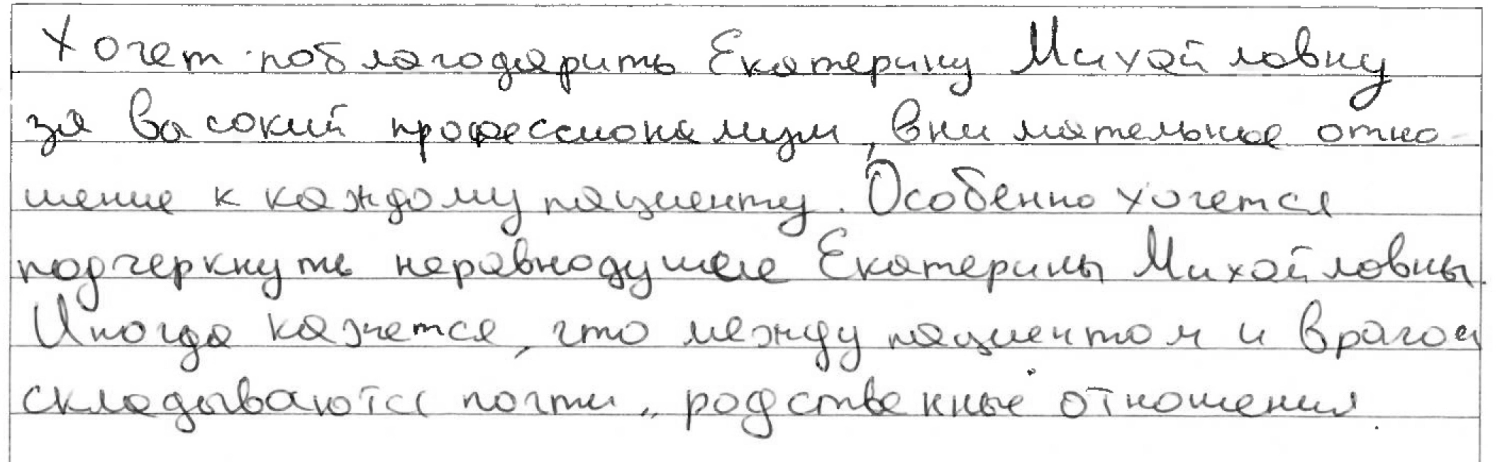 Хочет поблагодарить Екатерину Михайловну
за высокий профессионализм, внимательное отно-
шение к каждому пациенту. Особенно хочется
подчеркнуть неравнодушие Екатерины Михайловны.
Иногда кажется, что между пациентом и врачом
складываются почти „родственные" отношения.